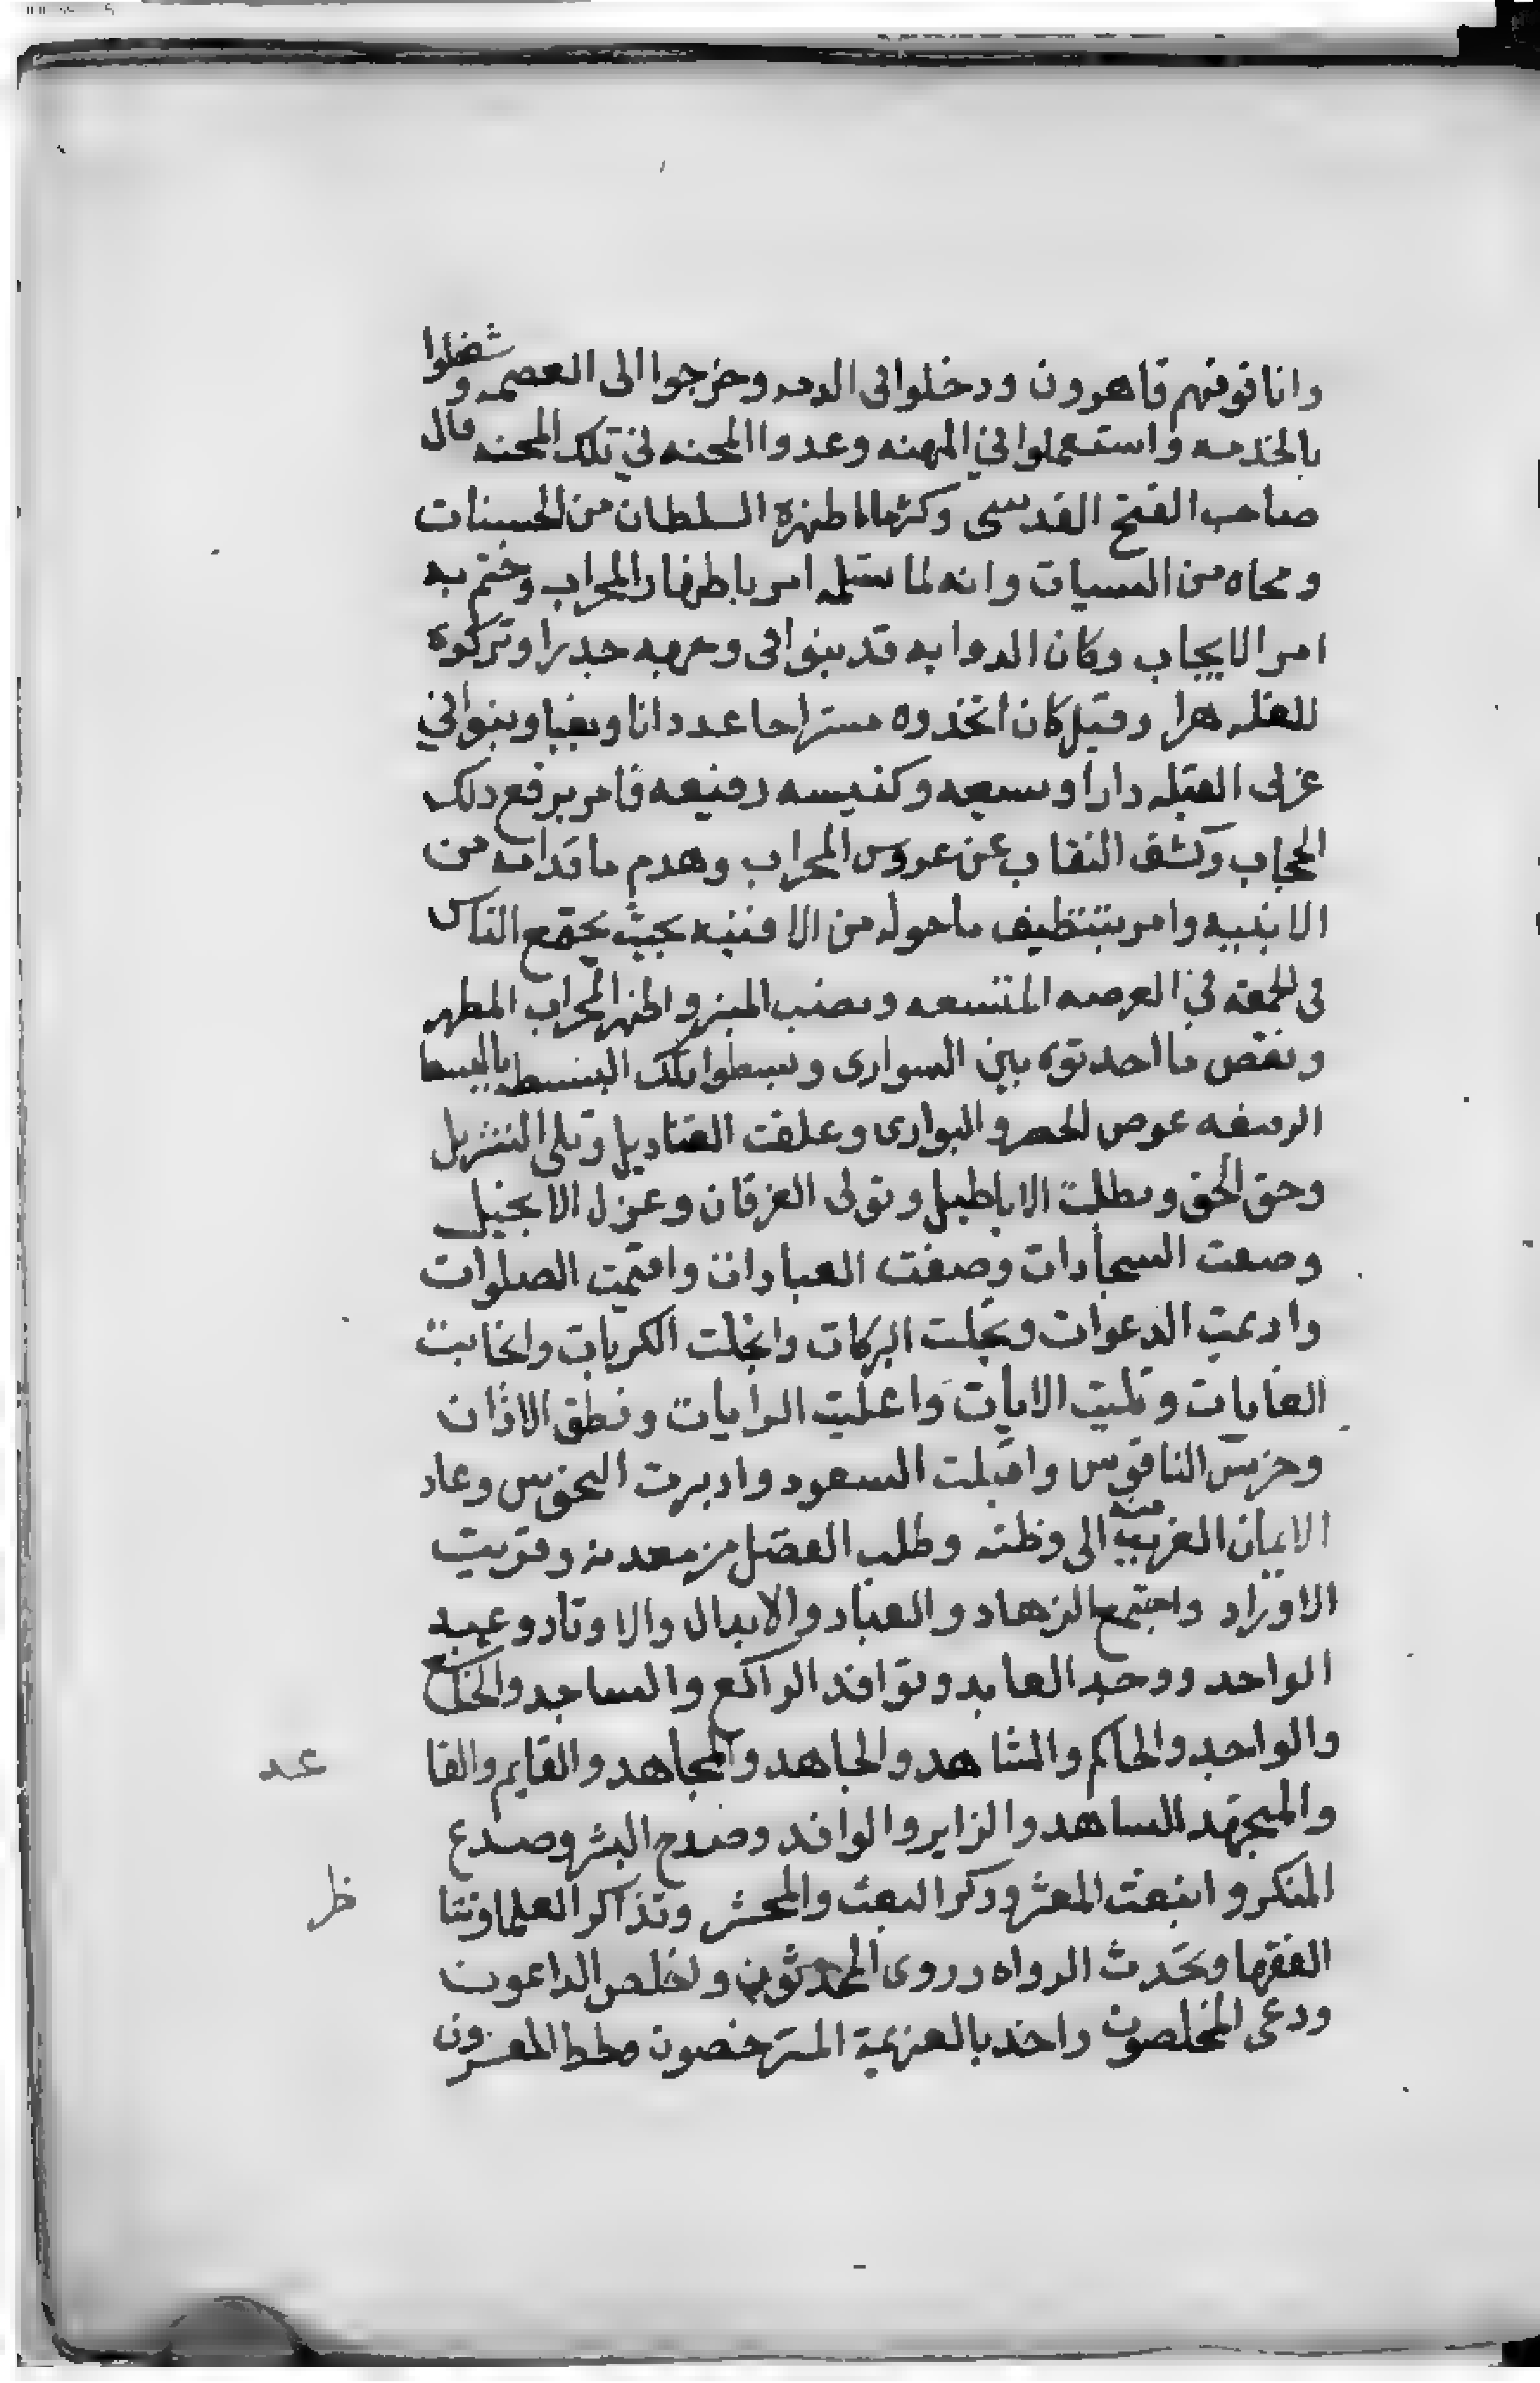 وانا فوقهم قاهرون ودخلوا في الدمه وخرجوا الى العصمه وشغلوا
بالخدمه واستعملوا في المهنه وعدوا المحنه في تلك المحنه قال
صاحب الفتح القدسى وذكر ما اظهره السلطان من الحسنات
ومحاه من السيات وانه لما تسلمه امر باظهار المحراب وختم به
امر الايجاب وكان الدوايه قد بنوا فى وجهه جدرا وتركوه
للغله هرا وقيل كان اتخذوه مستراحا عدوانا وبغيا وبنوا في
غربى القبله دارا وسيعه وكنيسه رفيعه فامر برفع ذلك
الحجاب وكشف النقاب عن عروس المحراب وهدم ما قدامه من
الابنيه وامر بتنظيف ماحوله من الافنيه بحيث يجتمع الناس
فى الجمعة في العرصه المتسعه ونصب المنبر واظهر المحراب المطهر
ونقض ما احدثوه بين السوارى وبسطوا تلك البسيطه بالبسط
الرفيعه عوض الحصر والبوارى وعلقت القناديل وتلى التنزيل
وحق الحق وبطلت الاباطيل وتولى الفرقان وعزل الانجيل
وصفت السجادات وصفت العبادات واقيمت الصلوات
وادعيت الدعوات وتجلت البركات وانجلت الكربات وانجابت
الغيابات وتليت الايات واعليت الرايات ونطق الاذان
وخرس الناقوس واقبلت السعود وادبرت النحوس وعاد
الايمان الغريب منه الى وطنه وطلب الفضل من معدنه وقريت
الاوراد واجتمع الزهاد والعباد والابدال والاوتاد وعبد
الواحد ووحد العابد وتوافد الراكع والساجد والخاشع
والواجد والحاكم والشاهد والجاهد والمجاهد والقايم والقا
عد
والمجتهد الساهد والزاير والوافد وصدح البشر وصدع
المنكر وانبعث المعشر وذكر البعث والمحشر وتذاكر العلما وتنا
ظر
الفقها وتحدث الرواه وروى المحدثون واخلص الداعون
ودعى المخلصون واخذ بالعزيمة المترخصون